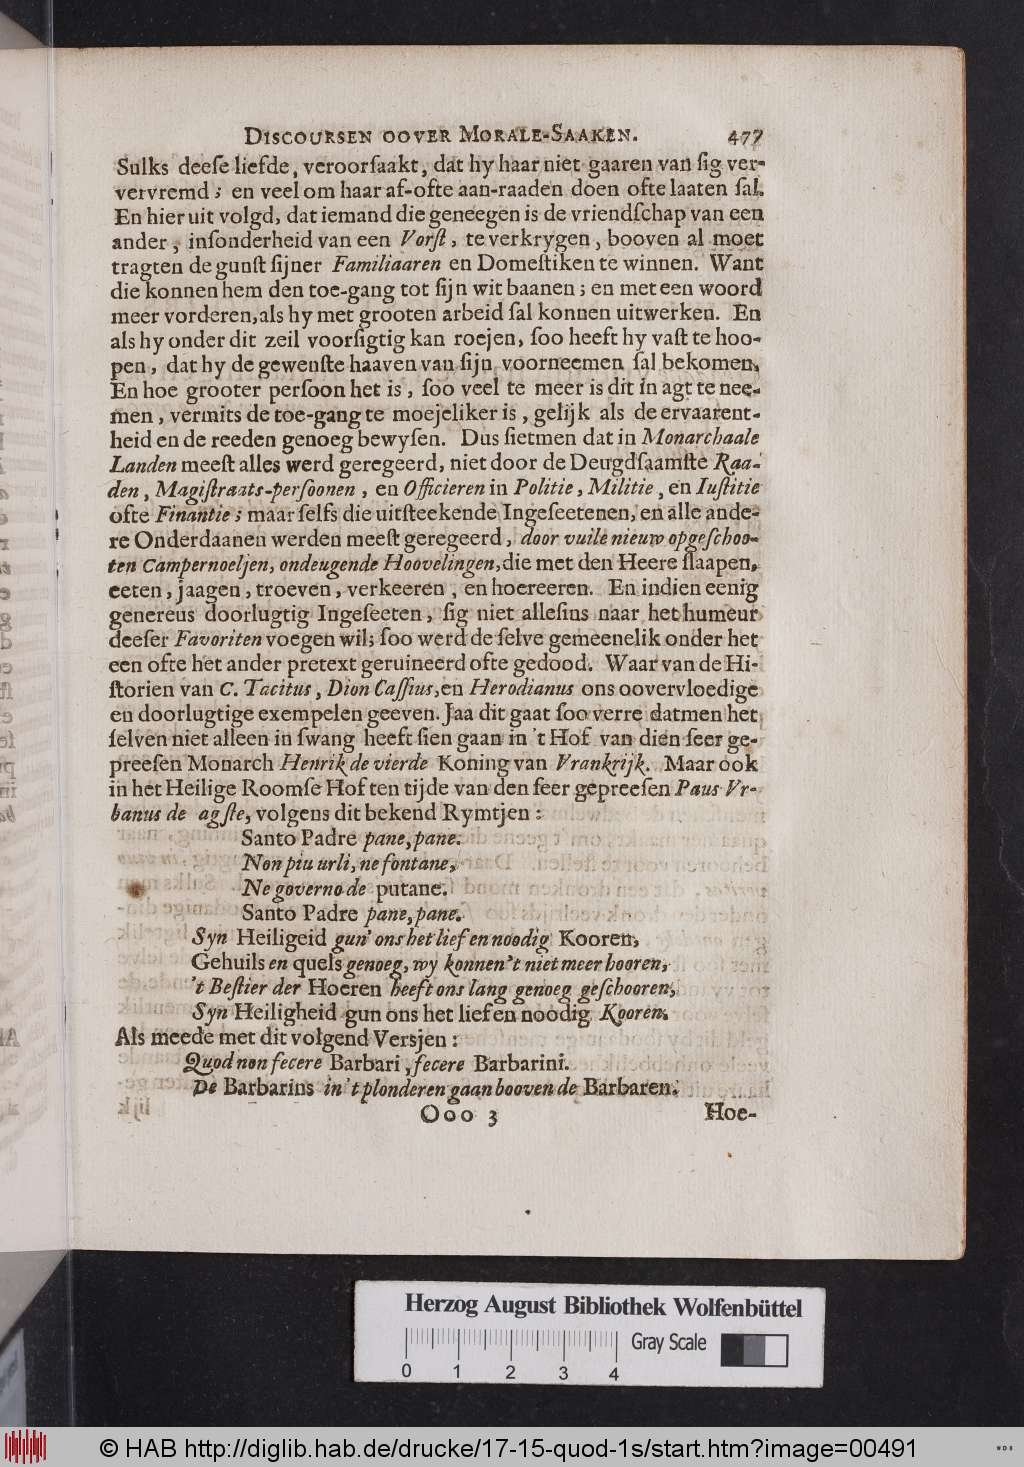 DISCOURSEN OOVER MORALE-SAAKEN. 477
Sulks deeſe liefde, veroorſaakt, dat hy haar niet gaaren van ſig ver-
vervremd; en veel om haar af-ofte aan-raaden doen ofte laaten ſal.
En hier uit volgd, dat iemand die geneegen is de vriendſchap van een
ander, inſonderheid van een Vorſt, te verkrygen, booven al moet
tragten de gunſt ſijner Familiaaren en Domeſtiken te winnen. Want
die konnen hem den toe-gang tot ſijn wit baanen; en met een woord
meer vorderen, als hy met grooten arbeid ſal konnen uitwerken. En
als hy onder dit zeil voorſigtig kan roejen, ſoo heeft hy vaſt te hoo-
pen, dat hy de gewenſte haaven van ſijn voorneemen ſal bekomen.
En hoe grooter perſoon het is, ſoo veel te meer is dit in agt te nee-
men, vermits de toe-gang te moejeliker is, gelijk als de ervaarent-
heid en de reeden genoeg bewyſen. Dus ſietmen dat in Monarchaale
Landen meeſt alles werd geregeerd, niet door de Deugdſaamſte Raa-
den, Magiſtraats-perſoonen, en Officieren in Politie, Militie, en Iuſtitie
ofte Finantie; maar ſelfs die uitſteekende Ingeſeetenen, en alle ande-
re Onderdaanen werden meeſt geregeerd, door vuile nieuw opgeſchoo-
ten Campernoeljen, ondeugende Hoovelingen, die met den Heere ſlaapen,
eeten, jaagen, troeven, verkeeren, en hoereeren. En indien eenig
genereus doorlugtig Ingeſeeten, ſig niet alleſins naar het humeur
deeſer Favoriten voegen wil; ſoo werd de ſelve gemeenelik onder het
een ofte het ander pretext geruineerd ofte gedood. Waar van de Hi-
ſtorien van C. Tacitus, Dion Caſſius, en Herodianus ons oovervloedige
en doorlugtige exempelen geeven. Jaa dit gaat ſoo verre datmen het
ſelven niet alleen in ſwang heeft ſien gaan in 't Hof van dien ſeer ge-
preeſen Monarch Henrik de vierde Koning van Vrankrijk. Maar ook
in het Heilige Roomſe Hof ten tijde van den ſeer gepreeſen Paus Vr-
banus de agſte, volgens dit bekend Rymtjen:
Santo Padre pane, pane.
Non piu urli, ne fontane,
Ne governo de putane.
Santo Padre pane, pane.
Syn Heiligeid gun' ons het lief en noodig Kooren,
Gehuils en quels genoeg, wy konnen't niet meer hooren,
't Beſtier der Hoeren heeft ons lang genoeg geſchooren,
Syn Heiligheid gun ons het lief en noodig Kooren.
Als meede met dit volgend Versjen:
Quod non fecere Barbari, fecere Barbarini.
De Barbarins in 't plonderen gaan booven de Barbaren.
Ooo 3 Hoe-
Herzog August Bibliothek Wolfenbüttel
Gray Scale
0 1 2 3 4
© HAB http://diglib.hab.de/drucke/17-15-quod-1s/start.htm?image=00491